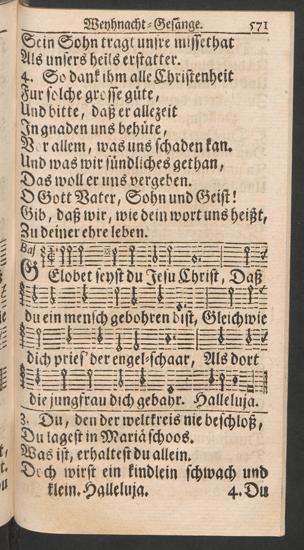 Weyhnacht-Gesänge. 571
Sein Sohn tragt unsre missethat
Als unsers heils erstatter.
4. So dank ihm alle Christenheit
Fur solche grosse güte,
Und bitte, daß er allezeit
In gnaden uns behüte,
Vor allem, was uns schaden kan.
Und was wir sündliches gethan,
Das woll er uns vergeben.
O Gott Vater, Sohn und Geist!
Gib, daß wir, wie dein wort uns heißt,
Zu deiner ehre leben.
Baß
GElobet seyst du Jesu Christ, Daß
du ein mensch gebohren bist, Gleich wie
dich pries' der engel-schaar, Als dort
die jungfrau dich gebahr. Halleluja.
3. Du, den der weltkreis nie beschloß,
Du lagest in Mariä schoos.
Was ist, erhaltest du allein.
Doch wirst ein kindlein schwach und
klein. Halleluja. 4. Du